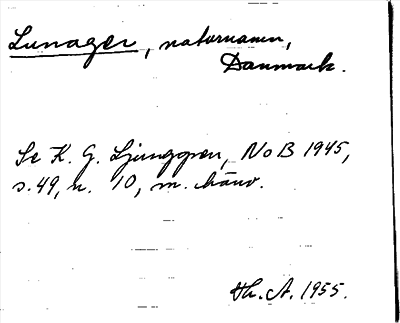 Lunager, naturnamn,
Danmark.
Se K. G. Ljunggren, NoB 1945,
s. 49, n. 10, m. hänv.
Th. A. 1955.